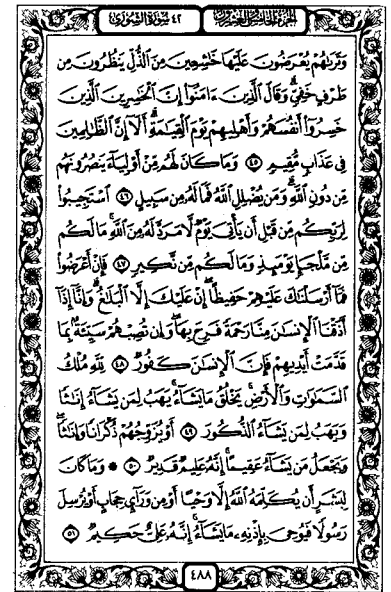 الجزء الخامس والعشرون ٤٢ سورة الشورى
وَتَرَىٰهُمْ يُعْرَضُونَ عَلَيْهَا خَٰشِعِينَ مِنَ ٱلذُّلِّ يَنظُرُونَ مِن
طَرْفٍ خَفِىٍّ ۗ وَقَالَ ٱلَّذِينَ ءَامَنُوٓا۟ إِنَّ ٱلْخَٰسِرِينَ ٱلَّذِينَ
خَسِرُوٓا۟ أَنفُسَهُمْ وَأَهْلِيهِمْ يَوْمَ ٱلْقِيَٰمَةِ ۗ أَلَآ إِنَّ ٱلظَّٰلِمِينَ
فِى عَذَابٍ مُّقِيمٍ ٤٥ وَمَا كَانَ لَهُم مِّنْ أَوْلِيَآءَ يَنصُرُونَهُم
مِّن دُونِ ٱللَّهِ ۗ وَمَن يُضْلِلِ ٱللَّهُ فَمَا لَهُۥ مِن سَبِيلٍ ٤٦ ٱسْتَجِيبُوا۟
لِرَبِّكُم مِّن قَبْلِ أَن يَأْتِىَ يَوْمٌ لَّا مَرَدَّ لَهُۥ مِنَ ٱللَّهِ ۚ مَا لَكُم
مِّن مَّلْجَإٍ يَوْمَئِذٍ وَمَا لَكُم مِّن نَّكِيرٍ ٤٧ فَإِنْ أَعْرَضُوا۟
فَمَآ أَرْسَلْنَٰكَ عَلَيْهِمْ حَفِيظًا ۖ إِنْ عَلَيْكَ إِلَّا ٱلْبَلَٰغُ ۗ وَإِنَّآ إِذَآ
أَذَقْنَا ٱلْإِنسَٰنَ مِنَّا رَحْمَةً فَرِحَ بِهَا ۖ وَإِن تُصِبْهُمْ سَيِّئَةٌۢ بِمَا
قَدَّمَتْ أَيْدِيهِمْ فَإِنَّ ٱلْإِنسَٰنَ كَفُورٌ ٤٨ لِّلَّهِ مُلْكُ
ٱلسَّمَٰوَٰتِ وَٱلْأَرْضِ ۚ يَخْلُقُ مَا يَشَآءُ ۚ يَهَبُ لِمَن يَشَآءُ إِنَٰثًا
وَيَهَبُ لِمَن يَشَآءُ ٱلذُّكُورَ ٤٩ أَوْ يُزَوِّجُهُمْ ذُكْرَانًا وَإِنَٰثًا ۖ
وَيَجْعَلُ مَن يَشَآءُ عَقِيمًا ۚ إِنَّهُۥ عَلِيمٌ قَدِيرٌ ٥٠ ۞ وَمَا كَانَ
لِبَشَرٍ أَن يُكَلِّمَهُ ٱللَّهُ إِلَّا وَحْيًا أَوْ مِن وَرَآئِ حِجَابٍ أَوْ يُرْسِلَ
رَسُولًا فَيُوحِىَ بِإِذْنِهِۦ مَا يَشَآءُ ۚ إِنَّهُۥ عَلِىٌّ حَكِيمٌ ٥١
٤٨٨